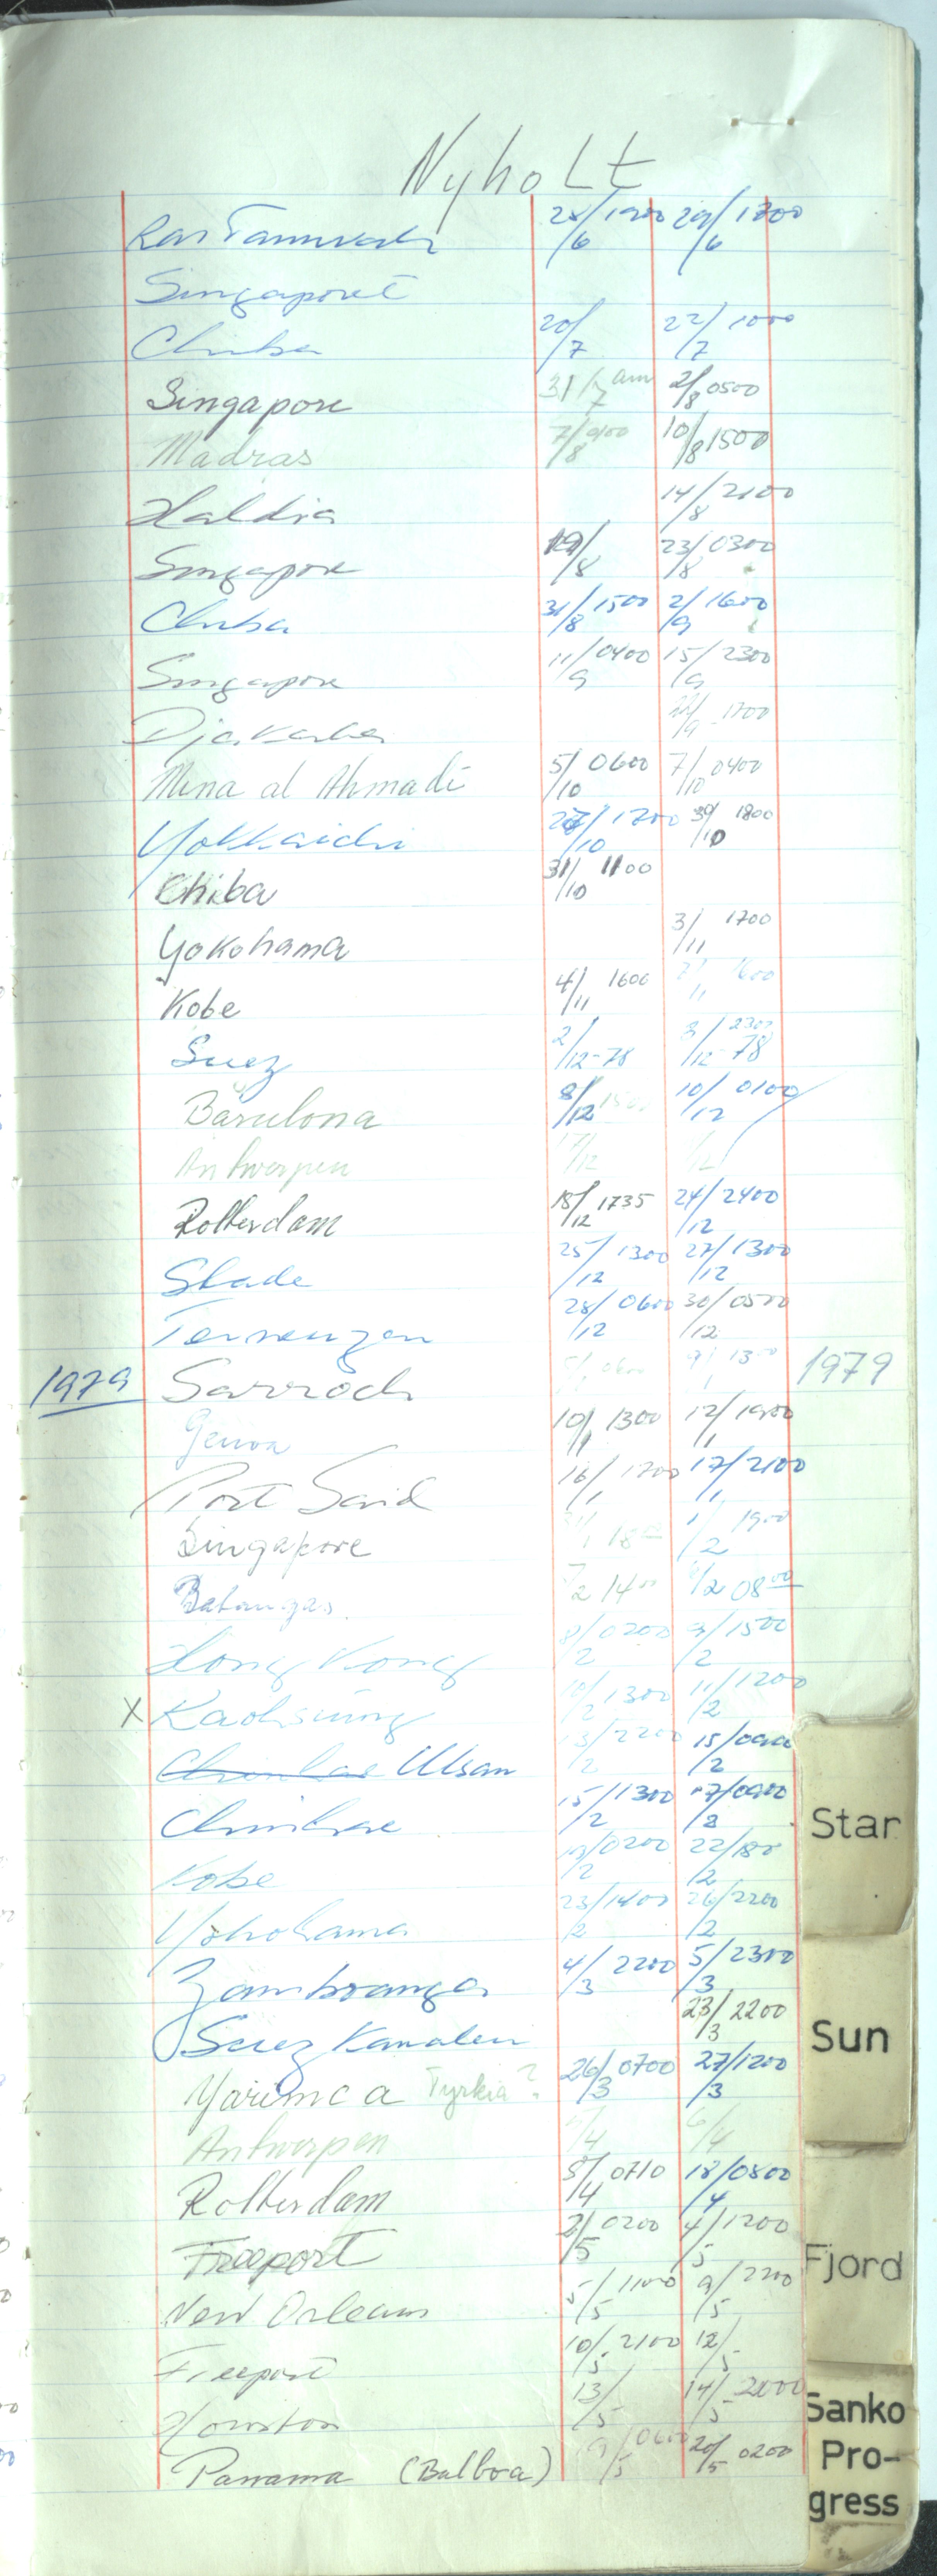 Nyholt
Ras Tannurah 28/6 1900 29/6 1300
Singapore
Chiba 20/7 22/7 1000
Singapore 31/7 am 2/8 0500
Madras 7/8 0100 10/8 1500
Haldia 14/8 2100
Singapore 19/8 23/8 0300
Chiba 31/8 1500 2/9 1600
Singapore 11/9 0400 15/9 2300
Djakarta 22/9 1700
Mina al Ahmadi 5/10 0600 7/10 0400
Yokkaichi 27/10 1700 30/10 1800
Chiba 31/10 1100
Yokohama 3/11 1700
Kobe 4/11 1600 /11 1600
Suez 2/12-78 3/12-78 2300
Barcelona 8/12 1500 10/12 0100
Antwerpen 17/12 /12
Rotterdam 18/12 1735 24/12 2400
Stade 25/12 1300 27/12 1300
Terneuzen 28/12 0600 30/12 0500
1979 Sarroch 5/1 9/1 1300 1979
Genoa 10/1 1300 12/1 1900
Port Said 16/1 1700 17/1 2100
Singapore 31/1 18 1/2 1900
Batangas /2 1400 /2 0800
Hong Kong 8/2 0200 9/2 1500
X Kaohsiung 10/2 1300 11/2 1200
Ulsan 13/2 2200 15/2 0900
Chinhae 15/2 1300 17/2 0900
Kobe 19/2 0200 22/2 1800
Yokohama 23/2 1400 26/2 2200
Zamboanga 4/3 2200 5/3 2300
Suez Kanalen 23/3 2200
Yarimca Tyrkia? 26/3 0700 27/3 1200
Antwerpen /4 6/4
Rotterdam 8/4 0710 18/4 0800
Freeport 2/5 0200 4/5 1200
New Orleans 5/5 1100 9/5 2200
Freeport 10/5 2100 12/5
Houston 13/5 14/5 2000
Panama (Balboa) 19/5 0600 20/5 0200
Star
Sun
Fjord
Sanko
Pro-
gress